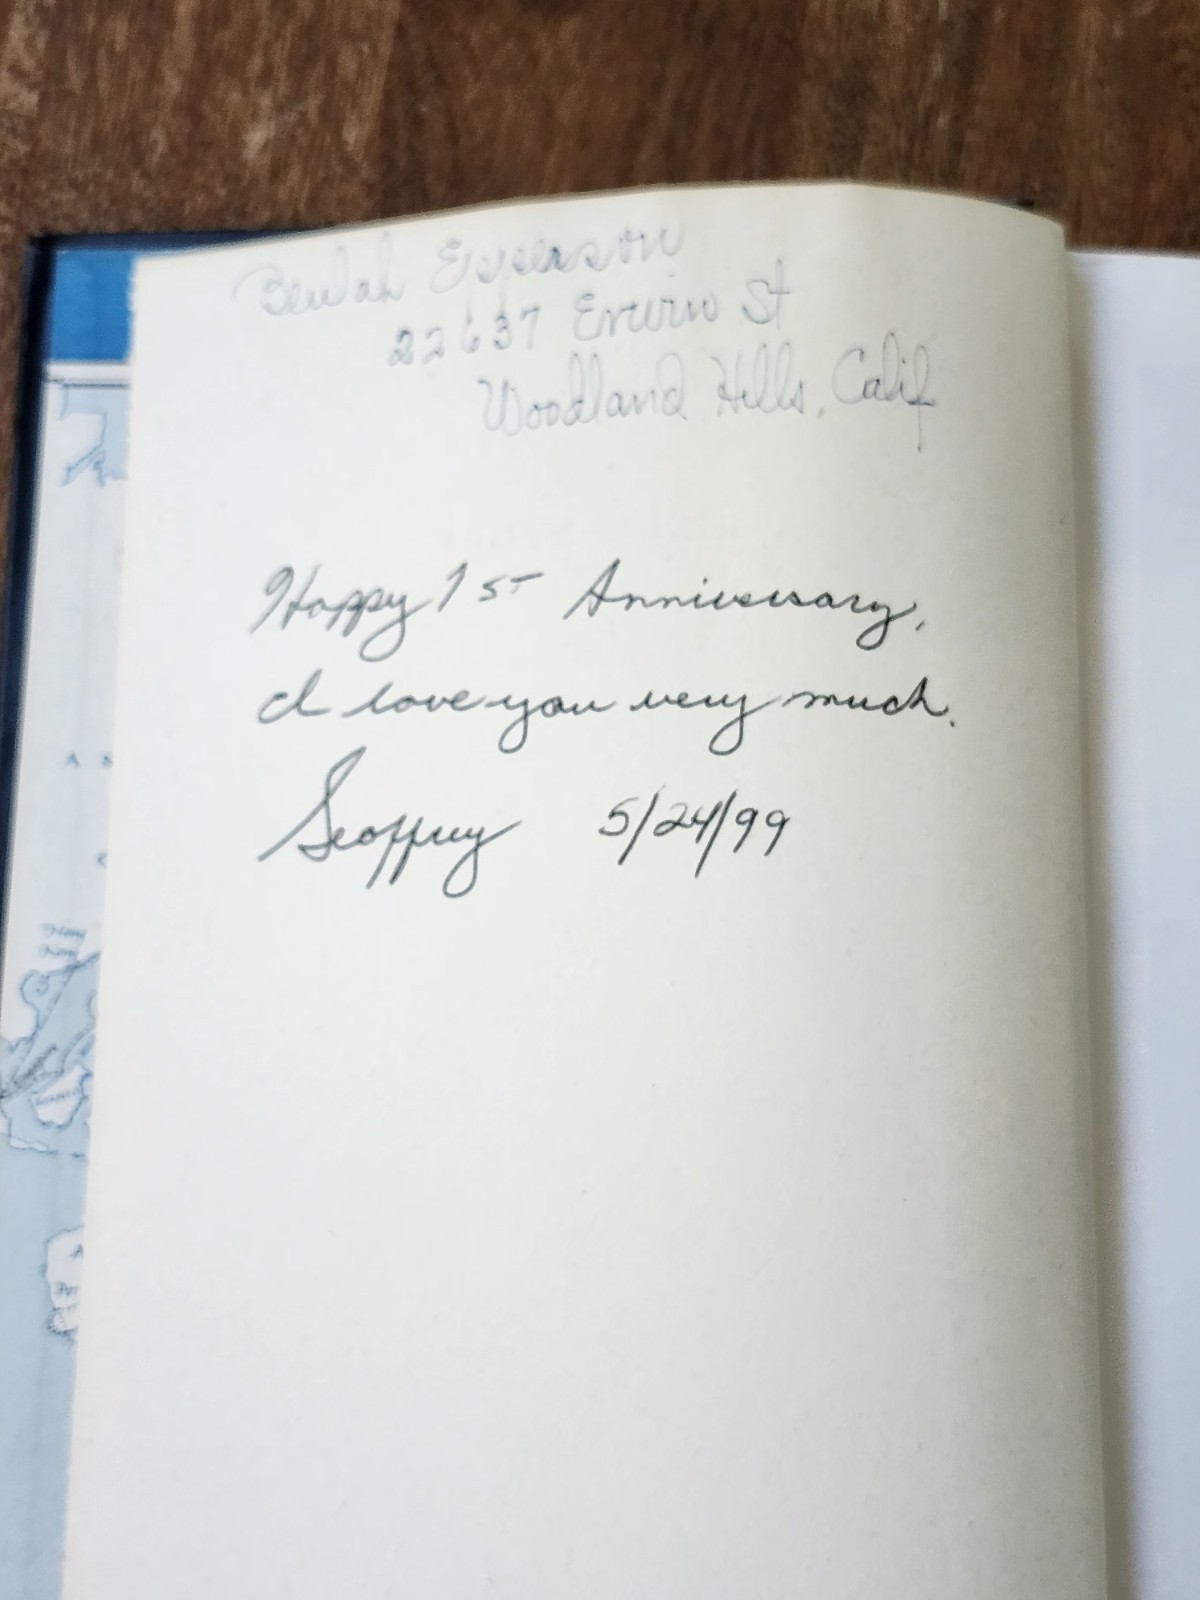 Beulah Epperson
22637 Erwin St
Woodland Hills, Calif
Happy 1st Anniversary,
I love you very much.
Geoffrey 5/24/99